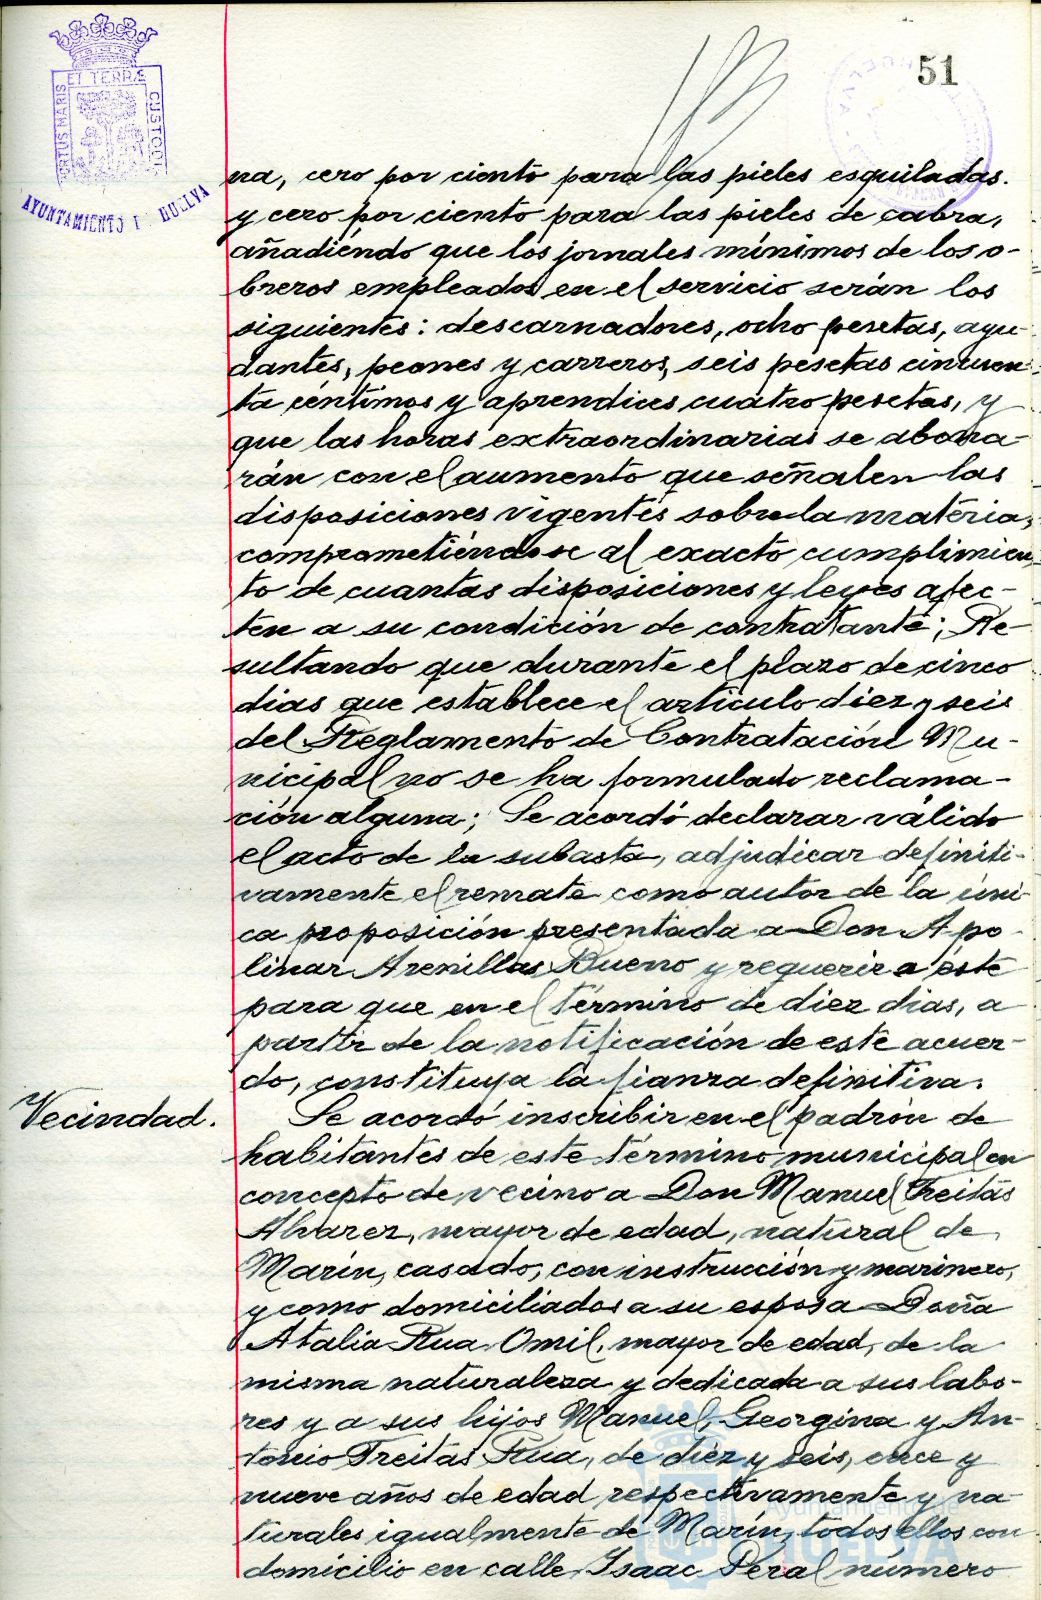 51
PORTUS MARIS ET TERRÆ CUSTODI
AYUNTAMIENTO HUELVA
na, cero por ciento para las pieles esquiladas.
y cero por ciento para las pieles de cabra,
añadiendo que los jornales mínimos de los o-
breros empleados en el servicio serán los
siguientes: descarnadores, ocho pesetas, ayu-
dantes, peones y carreros, seis pesetas cincuen-
ta céntimos y aprendices cuatro pesetas, y
que las horas extraordinarias se abona-
rán con el aumento que señalen las
disposiciones vigentes sobre la materia,
comprometiéndose al exacto cumplimien-
to de cuantas disposiciones y leyes afec-
ten a su condición de contratante; Re-
sultando que durante el plazo de cinco
dias que establece el artículo diez y seis
del Reglamento de Contratación Mu-
nicipal no se ha formulado reclama-
ción alguna; Se acordó declarar válido
el acto de la subasta, adjudicar definiti-
vamente el remate como autor de la úni-
ca proposición presentada a Don Apo-
linar Arenillas Bueno y requerir a éste
para que en el término de diez dias, a
partir de la notificación de este acuer-
do, constituya la fianza definitiva.
Vecindad.
Se acordó inscribir en el padrón de
habitantes de este término municipal en
concepto de vecino a Don Manuel Freitas
Alvarez, mayor de edad, natural de
Marín, casado, con instrucción y marinero,
y como domiciliados a su esposa Doña
Atalia Rua Omil, mayor de edad, de la
misma naturaleza y dedicada a sus labo-
res y a sus hijos Manuel, Georgina y An-
tonio Freitas Rua, de diez y seis, once y
nueve años de edad respectivamente y na-
turales igualmente de Marín, todos ellos con
domicilio en calle Isaac Peral número
Ayuntamiento de
HUELVA